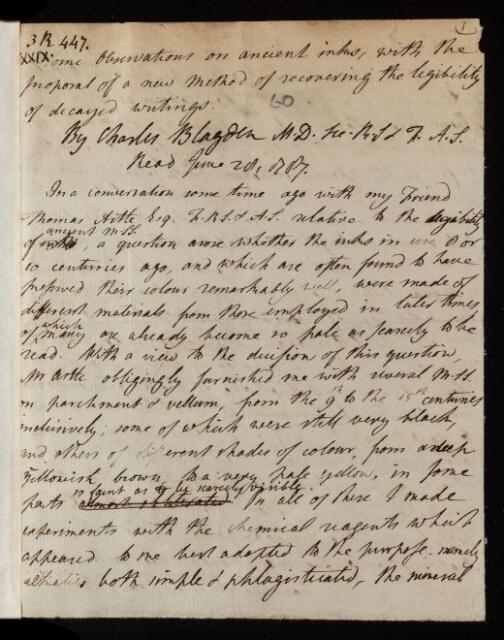 1
3 R 447.
XXIX. Some Observations on ancient inks, with the
proposal of a new method of recovering the legibility
of decayed writings.
60
By Charles Blagden M.D. Sec. R.S. & F. A.S.
Read June 28, 1787.
In a conversation some time ago with my Friend
Thomas Astle Esq. F.R.S. & A.S. relative to the legibility
ancient MSS.
of, a question arose whether the inks in use 8 or
10 centuries ago, and which are often found to have
preserved their colour remarkably well, were made of
different materials from those employed in later times
which
of many are already become so pale as scarcely to be
read. With a view to the decision of this question,
Mr Astle obligingly furnished me with several M.SS.
on parchment & vellum, from the 9th to the 15th centuries
inclusively; some of which were still very black,
and others of different shades of colour, from a deep
yellowish brown, to a very pale yellow, in some
so faint as to be scarcely visible.
parts almost obliterated On all of these I made
experiments with the chemical reagents which
appeared to me best adapted to the purpose, namely
alkalies both simple & phlogisticated, the mineral